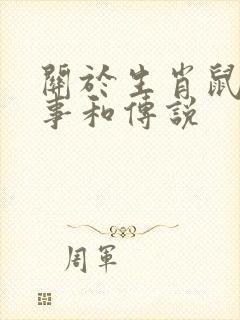 關於生肖鼠
事和傳說
周軍